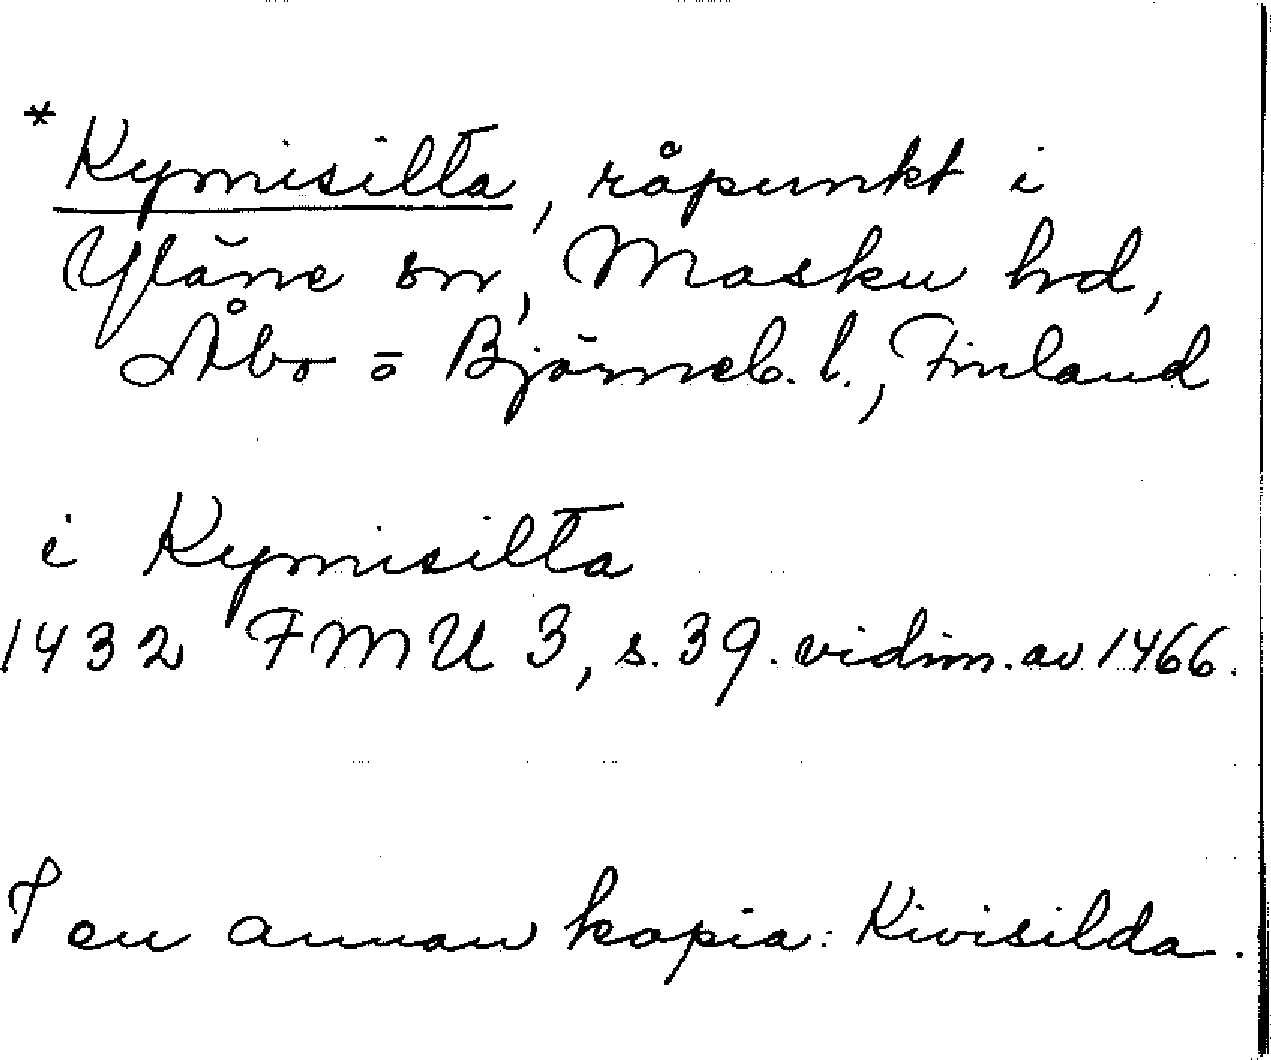 * Kymisilta, råpunkt i
Yläne sn, Masku hd,
Åbo o Björneb. l., Finland
i Kymisilta
1432 FMU 3, s. 39. vidim. av 1466.
I en annan kopia: Kivisilda.